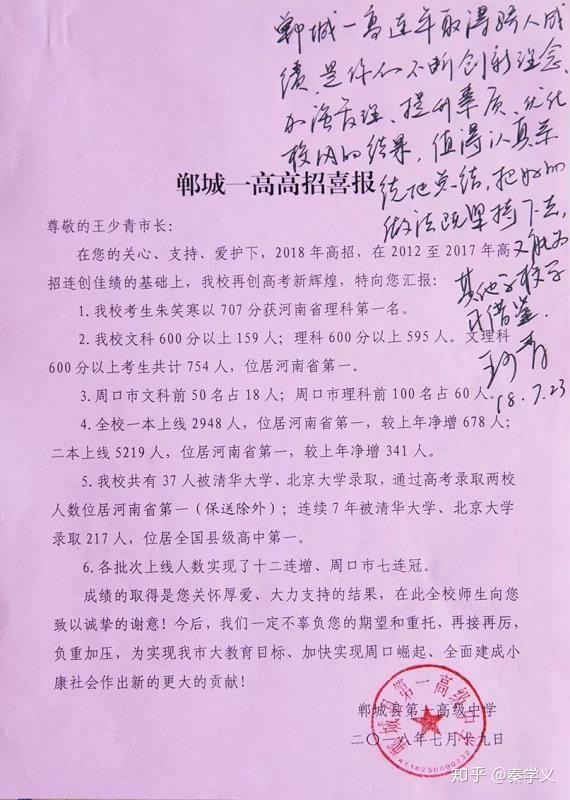 郸城一高连年取得骄人成
绩,是你们不断创新理念、
加强管理、提升素质、优化
校风的结果,值得认真系
统地总结,把好的
做法既坚持下去,
又能为
其他学校学
习借鉴.
王少青
18.7.23
郸城一高高招喜报
尊敬的王少青市长：
在您的关心、支持、爱护下，2018年高招，在2012至2017年高
招连创佳绩的基础上，我校再创高考新辉煌，特向您汇报：
1.我校考生朱笑寒以707分获河南省理科第一名。
2.我校文科600分以上159人；理科600分以上595人。文理科
600分以上考生共计754人，位居河南省第一。
3.周口市文科前50名占18人；周口市理科前100名占60人。
4.全校一本上线2948人，位居河南省第一，较上年净增678人；
二本上线5219人，位居河南省第一，较上年净增341人。
5.我校共有37人被清华大学、北京大学录取，通过高考录取两校
人数位居河南省第一（保送除外）；连续7年被清华大学、北京大学
录取217人，位居全国县级高中第一。
6.各批次上线人数实现了十二连增、周口市七连冠。
成绩的取得是您关怀厚爱、大力支持的结果，在此全校师生向您
致以诚挚的谢意！今后，我们一定不辜负您的期望和重托，再接再厉，
负重加压，为实现我市大教育目标、加快实现周口崛起、全面建成小
康社会作出新的更大的贡献！
郸城县第一高级中学
二〇一八年七月十九日
郸城县第一高级中学
4116250000732
知乎 @秦学义